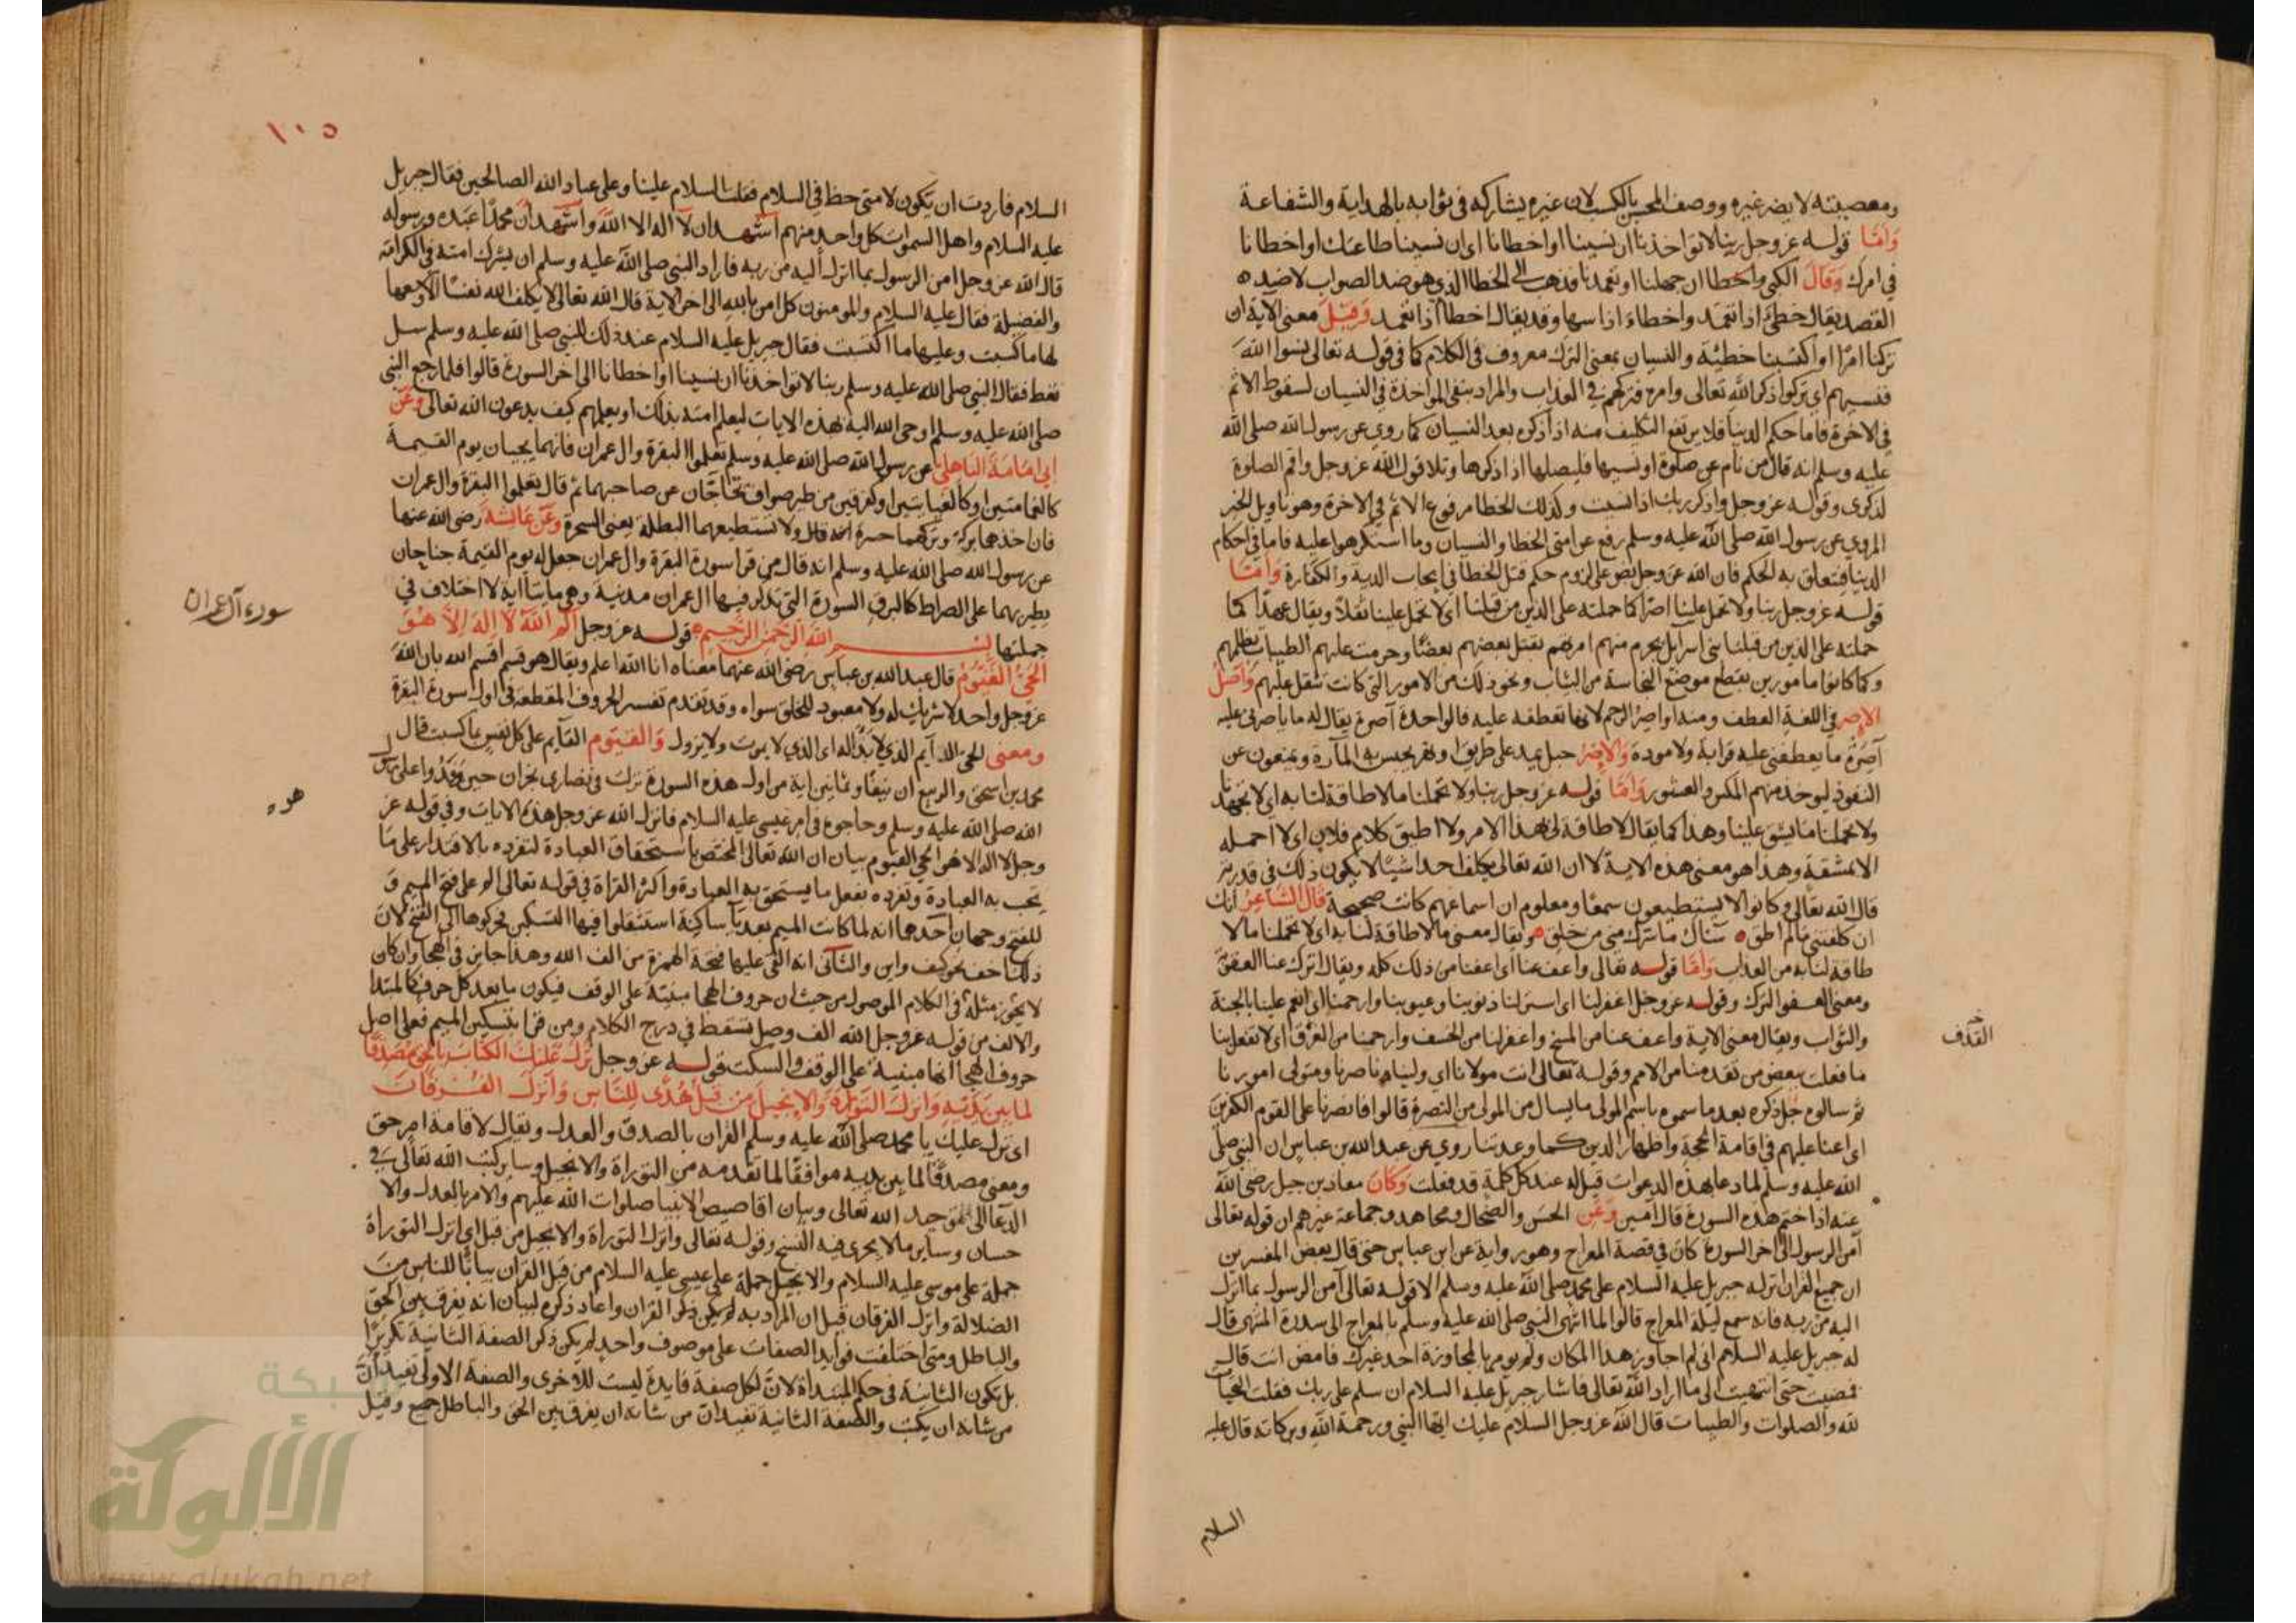 ومعصيته لا يضر غيره ووصف المحسن بالكسب لان غيره يشاركه في ثوابه بالهداية والشفاعة
وَامّا قوله عز وجل ربنا لا تواخذنا ان نسينا او اخطانا اى ان نسينا طاعتك او اخطانا
في امرك وَقالَ الكلبي واخطا ان جهلنا او تعمدنا فذهب الى الخطا الذي هو ضد الصواب لا ضد
القصد يقال خطئ اذا تعمد واخطاء اذا سها وقد يقال اخطا اذا تعمد وَقيل معنى الاية ان
تركنا امرًا او اكتسبنا خطيئة والنسيان بمعنى الترك معروف في الكلام كما في قوله تعالى نسوا الله
فنسيهم اى تركوا ذكر الله تعالى وامره فتركهم في العذاب والمراد بنفي المواخذة في النسيان لسقوط الاثم
في الاخرة فاما حكم الدنيا فلا يرتفع التكليف منه اذا ذكره بعد النسيان كما روي عن رسول الله صلى الله
عليه وسلم انه قال من نام عن صلوة او نسيها فليصلها اذا ذكرها وتلا قول الله عز وجل واقم الصلوة
لذكرى وقوله عز وجل واذكر ربك اذا نسيت وكذلك الخطا مرفوع الاثم في الاخرة وهو تاويل الخبر
المروي عن رسول الله صلى الله عليه وسلم رفع عن امتى الخطا والنسيان وما استكرهوا عليه فاما في احكام
الدنيا فيتعلق به الحكم فان الله عز وجل نص على لزوم حكم قتل الخطا في ايجاب الدية والكفارة وَامّا
قوله عز وجل ربنا ولا تحمل علينا اصرا كما حملته على الذين من قبلنا اى لا تحمل علينا ثقلا ويقال عهدًا كما
حملته على الذين من قبلنا بنى اسرآيل بجرم منهم امرتهم بقتل بعضهم بعضًا وحرمت عليهم الطيبات بظلمهم
وكما كانوا مامورين بقطع موضع النجاسة من الثياب ونحو ذلك من الامور التى كانت تثقل عليهم وَاصلُ
الاصر في اللغة العطف ومنه اواصر الرحم لانها تعطفه عليه فالواحدة آصرة يقال له ما ياصرنى عليه
آصرة ما يعطفني عليه قرابة ولا مودة وَالاصر حبل يمد على طريق او نهر يحبس به المآرة ويمنعون عن
النفوذ ليوخذ منهم المكس والعشور وَامّا قوله عز وجل ربنا ولا تحملنا ما لا طاقة لنا به اى لا تجهدنا
ولا تحملنا ما يشق علينا وهذا كما يقال لا طاقة لى بهذا الامر ولا اطيق كلام فلان اى لا احمله
الا بمشقة وهذا هو معنى هذه الاية لا ان الله تعالى يكلف احدا شيئا لا يكون ذلك في قدرته
قال الله تعالى وكانوا لا يستطيعون سمعًا ومعلوم ان اسماعهم كانت صحيحة قال الشاعر انك
ان كلفتنى ما لم اطق ه ساك ما سرك منى من خلق ه ويقال معنى ما لا طاقة لنا به اى لا تحملنا ما لا
طاقة لنا به من العذاب وَامّا قوله تعالى واعف عنا اى اعفنا من ذلك كله ويقال اترك عنا العقوبة
ومعنى العفو الترك وقوله عز وجل اغفر لنا اى استر لنا ذنوبنا وعيوبنا وارحمنا اى انعم علينا بالجنة
والثواب ويقال معنى الاية واعف عنا من المسخ واغفر لنا من الخسف وارحمنا من الغرق اى لا تفعل بنا
ما فعلت ببعض من تقدمنا من الامم وقوله تعالى انت مولانا اى ولينا وناصرنا ومتولى امورنا
ثم سالوه جل ذكره بعد ما سموه باسم المولى ما يسال من المولى من النصرة قالوا فانصرنا على القوم الكفرين
اى اعنا عليهم في اقامة الحجة واظهار الدين كما وعدتنا روي عن عبد الله بن عباس ان النبي صلى
الله عليه وسلم لما دعا بهذه الدعوات قيل له عند كل كلمة قد فعلت وَكانَ معاذ بن جبل رضى الله
عنه اذا ختم هذه السورة قال آمين وَعن الحسن والضحاك ومجاهد وجماعة غيرهم ان قوله تعالى
آمن الرسول الى آخر السورة كان في قصة المعراج وهو رواية عن ابن عباس حتى قال بعض المفسرين
ان جميع القران انزله جبريل عليه السلام على محمد صلى الله عليه وسلم الا قوله تعالى آمن الرسول بما انزل
اليه من ربه فانه سمع ليلة المعراج قالوا لما انتهى النبي صلى الله عليه وسلم بالمعراج الى سدرة المنتهى قال
له جبريل عليه السلام انى لم اجاوز هذا المكان ولم يومر بالمجاوزة احد غيرك فامض انت قال
فمضيت حتى انتهيت الى ما اراد الله تعالى فاشار جبريل عليه السلام ان سلم على ربك فقلت التحيات
لله والصلوات والطيبات قال الله عز وجل السلام عليك ايها النبي ورحمة الله وبركاته قال عليه
القذف
السلام
١٠٥
السلام فاردت ان يكون لامتى حظ في السلام فقلت السلام علينا وعلى عباد الله الصالحين فقال جبريل
عليه السلام واهل السموات كل واحد منهم اشهد ان لا اله الا الله واشهد ان محمدًا عبده ورسوله
قال الله عز وجل امن الرسول بما انزل اليه من ربه فاراد النبي صلى الله عليه وسلم ان يشرك امته في الكرامة
والفضيلة فقال عليه السلام والمومنون كل امن بالله الى اخر الاية قال الله تعالى لا يكلف الله نفسًا الا وسعها
لها ما كسبت وعليها ما اكتسبت فقال جبريل عليه السلام عند ذلك للنبي صلى الله عليه وسلم سل
تعط فقال النبي صلى الله عليه وسلم ربنا لا تواخذنا ان نسينا او اخطانا الى اخر السورة قالوا فلما رجع النبي
صلى الله عليه وسلم اوحى الله اليه بهذه الايات ليعلم امته بذلك او يعلمهم كيف يدعون الله تعالى وَعن
ابي امامة الباهلي عن رسول الله صلى الله عليه وسلم تعلموا البقرة وال عمران فانهما يجيان يوم القيمة
كالغمامتين او كالغيايتين او كفرقين من طير صواف تحاجان عن صاحبهما ثم قال تعلموا البقرة وال عمران
فان اخذهما بركة وتركهما حسرة ولا تستطيعهما البطلة يعنى السحرة وَعن عائشة رضى الله عنها
عن رسول الله صلى الله عليه وسلم انه قال من قرا سورة البقرة وال عمران جعل له يوم القيمة جناحان
يطير بهما على الصراط كالبرق السورة التى يذكر فيها ال عمران مدنية وهي مايتا اية لا اختلاف في
جملتها بسم الله الرحمن الرحيم قوله عز وجل الم الله لا اله الا هو
الحي القيوم قال عبد الله بن عباس رضى الله عنهما معناه انا الله اعلم ويقال هو قسم اقسم الله بان الله
عز وجل واحد لا شريك له ولا معبود للخلق سواه وقد تقدم تفسير الحروف المقطعة في اول سورة البقرة
ومعنى الحي الدآيم الذي لا بدآ له اى الذي لا يموت ولا يزول وَالقيوم القآيم على كل نفس بما كسبت قال
محمد بن اسحق والربيع ان نيفًا وثمانين اية من اول هذه السورة نزلت في نصارى نجران حين وفدوا على رسول
الله صلى الله عليه وسلم وحاجوه في امر عيسى عليه السلام فانزل الله عز وجل هذه الايات وفي قوله عز
وجل لا اله الا هو الحي القيوم بيان ان الله تعالى المختص باستحقاق العبادة لتفرده بالاقتدار على ما
يجب به العبادة وتفرده بفعل ما يستحق به العبادة واكثر القراة في قوله تعالى الم على فتح الميم و
للفتح وجهان احدهما انه لما كانت الميم بعد يآ ساكنة استثقلوا فيها التسكين فحركوها الى الفتح لان
ذلك اخف نحو كيف واين والثانى انه القى عليها فتحة الهمزة من الف الله وهذا جايز في الهجا وان كان
لا يجوز مثله في الكلام الموصول من حيث ان حروف الهجا مبنية على الوقف فيكون ما بعد كل حرف كالمبتدا
والالف من قوله عز وجل الله الف وصل تسقط في درج الكلام ومن قرا بتسكين الميم فعلى اصل
حروف الهجا انها مبنية على الوقف والسكت قوله عز وجل نزل عليك الكتاب بالحق مصدقا
لما بين يديه وانزل التوراة والانجيل من قبل هدى للناس وانزل الفرقان
اى نزل عليك يا محمد صلى الله عليه وسلم القران بالصدق والعدل ويقال لاقامة امر حق
ومعنى مصدقًا لما بين يديه موافقًا لما تقدمه من التوراة والانجيل وساير كتب الله تعالى في
الدعآ الى توحيد الله تعالى وبيان اقاصيص الانبيا صلوات الله عليهم والامر بالعدل والا
حسان وساير ما لا يجرى فيه النسخ وقوله تعالى وانزل التوراة والانجيل من قبل اى انزل التوراة
جملة على موسى عليه السلام والانجيل جملة على عيسى عليه السلام من قبل القران بيانًا للناس من
الضلالة وانزل الفرقان قيل ان المراد به ذكر القران واعاد ذكره لبيان انه يفرق بين الحق
والباطل ومتى اختلفت فوايد الصفات على موصوف واحد لم يكن ذكر الصفة الثانية تكريرًا
بل تكون الثانية في حكم المبتداة لان لكل صفة فايدة ليست للاخرى والصفة الاولى تفيد ان
من شانه ان يكتب والصفة الثانية تفيد ان من شانه ان يفرق بين الحق والباطل جميع وقيل
سورة آل عمران
هو
شبكة
الألوكة
www.alukah.net